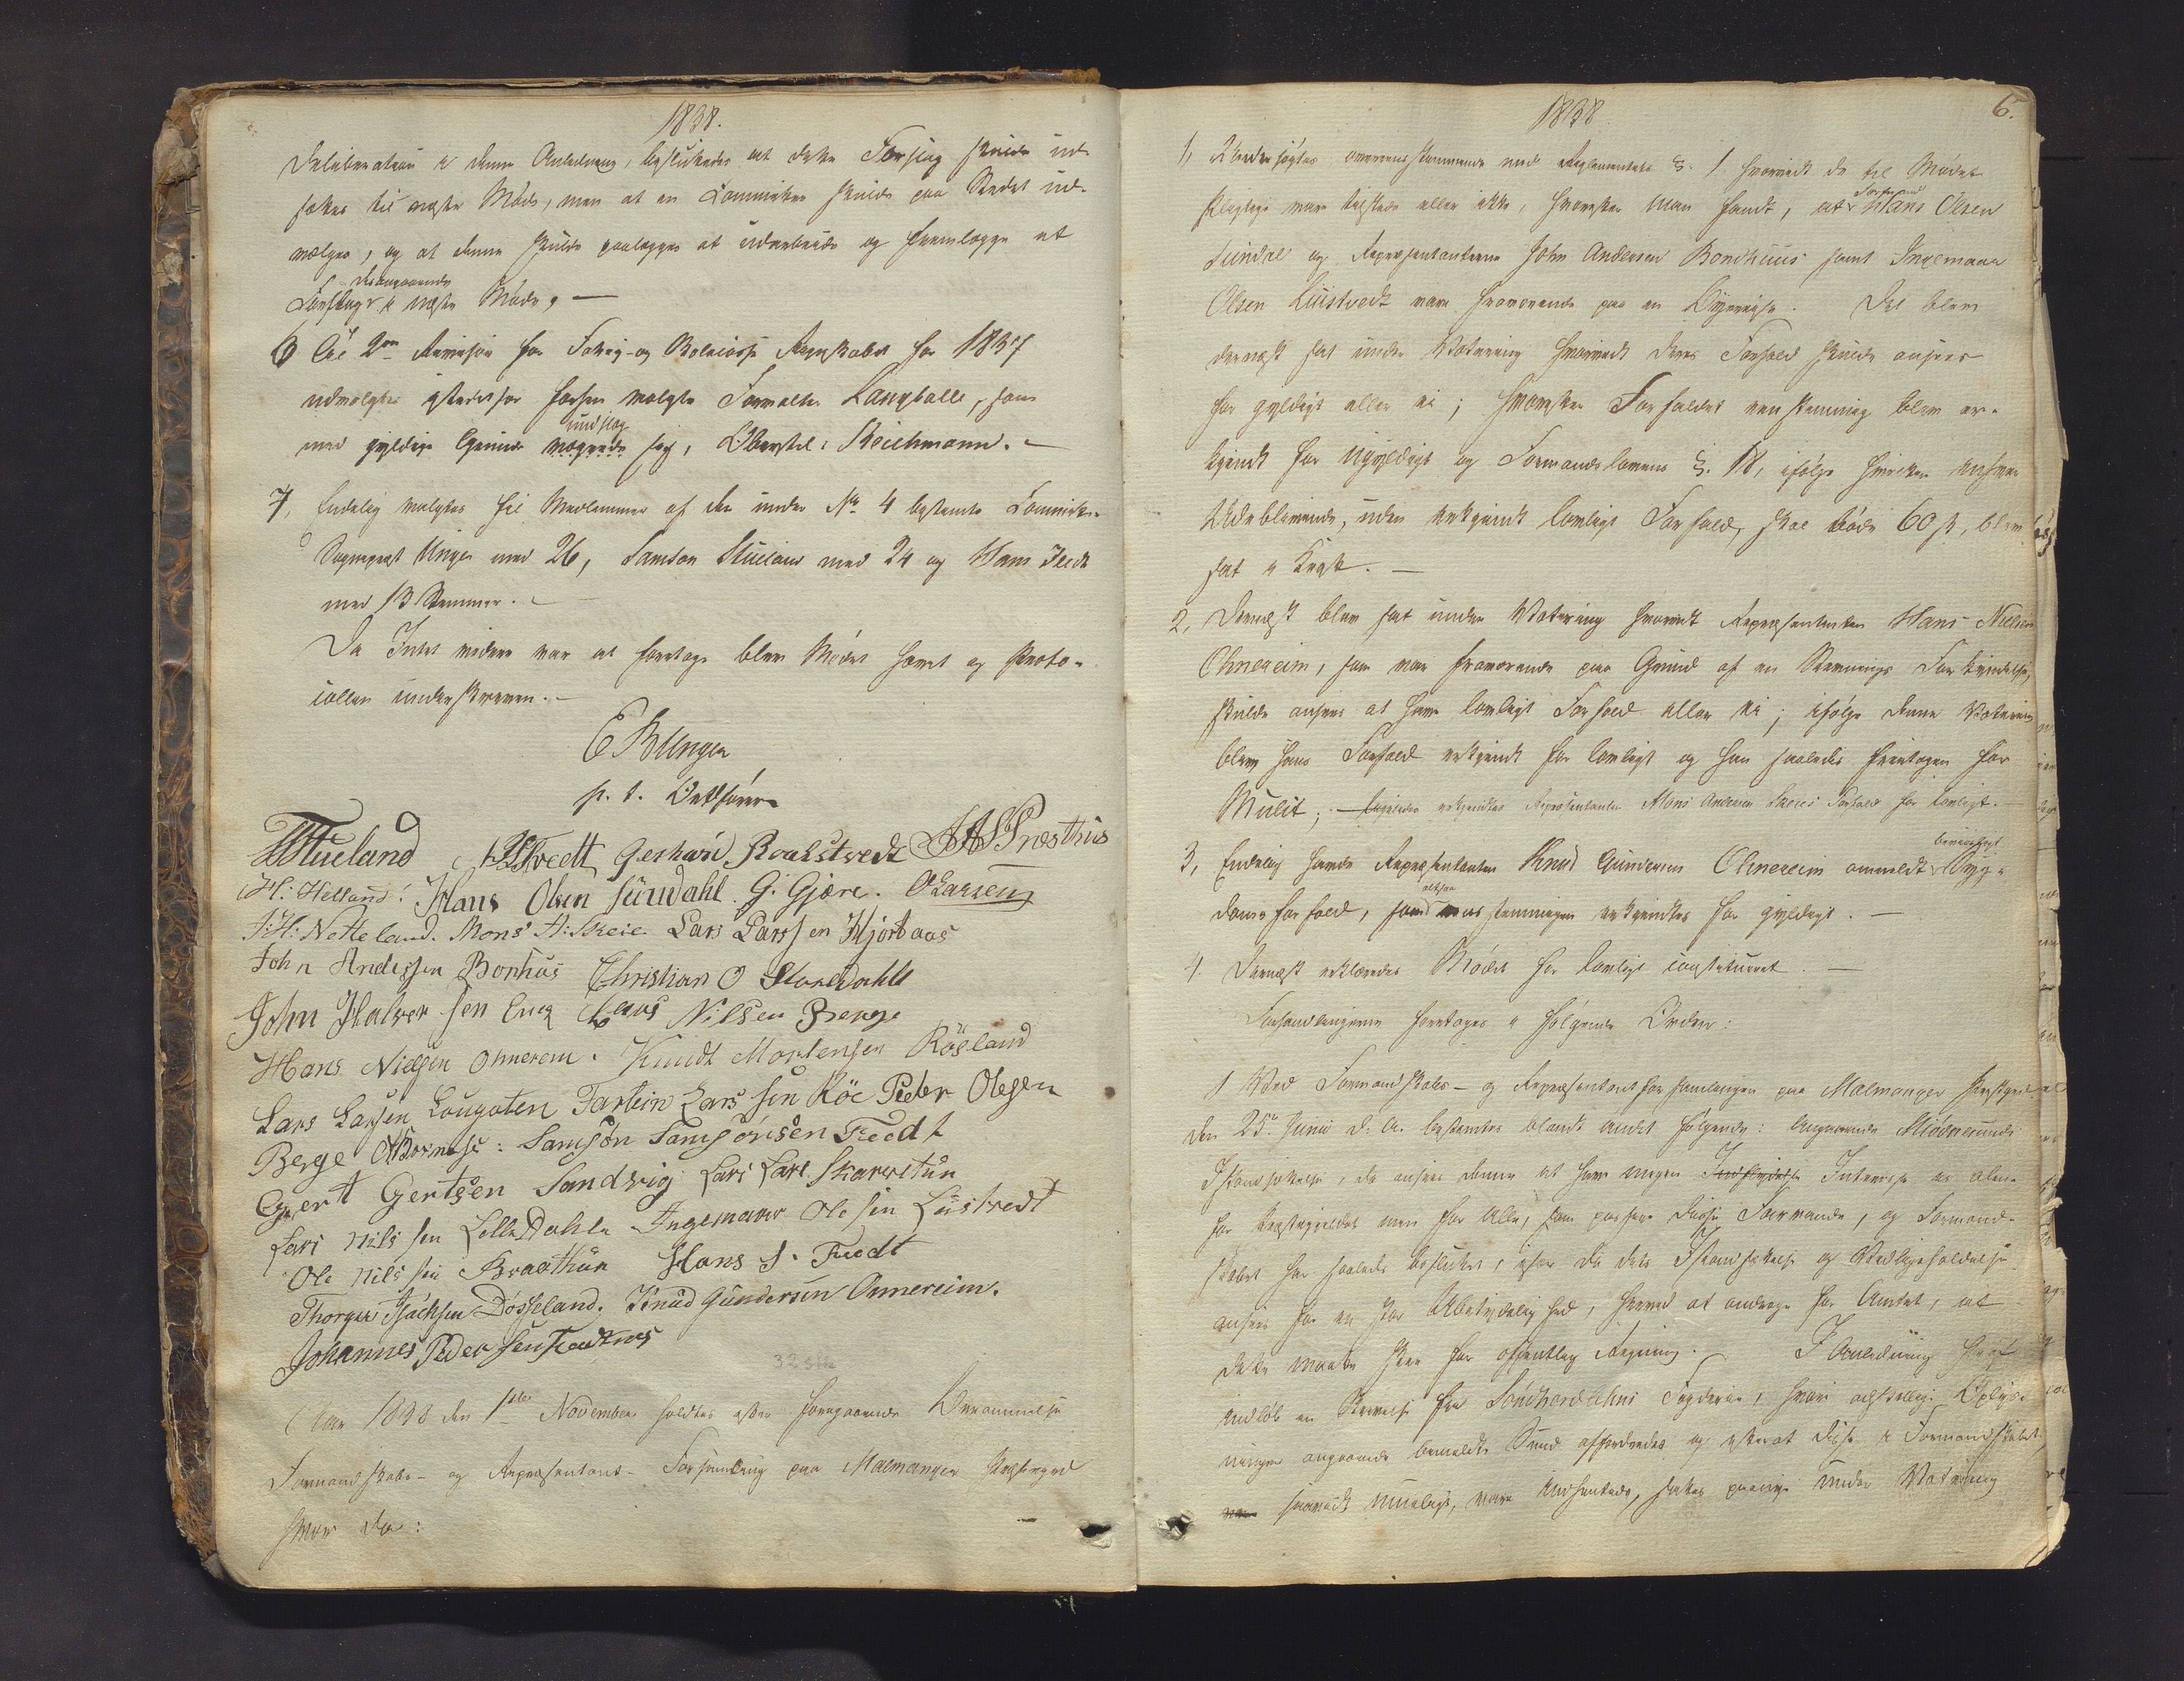 1838.
Deliberation i denne Anledning, besluttedes at dette Forslag skulde ud-
sættes til næste Møde, men at en Committee skulde paa Stedet ud-
vælges, og at denne skulde paalægges at udarbeide og fremlægge et
desangaaende
Forslag i næste Møde. —
6 Til 2den Revisor for Fattig- og Skolecasse Regnskabet for 1837
udvalgtes istedetfor forhen valgte Forvalter Langballe, som
undslog
med gyldige Grunde vægrede sig, Oberstl: Reichmann. —
7, Endelig valgtes til Medlemmer af den under No 4 bestemte Committee
Sognepræst Unger med 26, Samson Stueland med 24 og Hans Tvedt
med 13 Stemmer. —
Da Intet videre var at foretage blev Mødet hævet og Proto-
collen underskreven. —
E B Unger
p. t. Ordfører
Stueland Tvedt Gerhard Roaldstvedt Præsthus
H: Helland: Hans Olsen Sundahl. G. Gjøre. O Larsen
J: H: Netteland. Mons A: Skeie. Lars Larssen Hjortaas
John Andersen Bonhus Christian O Storedahle
John Halversen Eneg Claus Nilsen Berge
Hans Nielsen Omerem. Knudt Mortensen Røsland
Lars Larsen Lougaten Tarbein Larssen Röe Peder Olesen
Berge Samson Samsonsen Tvedt
Gjert Gertsen Sandvig Lars Lars. Skarvetun
Lars Nilssen Lille Dahle Ingemaar Olesen Lustvedt
Ole Nilssen Braathun Hans S. Tvedt
Thorger Isachsen Døsseland. Knud Gundersen Omereim.
Johannes Pedersen
32 stk
Aar 1838 den 1ste November holdtes efter foregaaende Berammelse
Formandskabs- og Repræsentant-Forsamling paa Malmanger Præstegaard
hvor da:
1838
6.
1, Undersøgtes overeensstemmende med Reglementets §. 1 hvorvidt de til Mødet
Formand
pligtige vare tilstede eller ikke, hvorefter man fandt, at Hans Olsen
Sundal og Repræsentanterne John Andersen Bondhuus samt Ingemaar
Olsen Luistvedt vare fraværende paa en Byereise. Det blev
dernæst sat under Votering hvorvidt deres Forfald skulde ansees
for gyldigt eller ei; hvorefter Forfaldet ved Stemning blev er-
kjendt for ugyldigt og Formandslovens §. 18, ifølge hvilken enhver
Udeblivende, uden erkjendt lovligt Forfald, skal bøde 60 ß, blev
sat i Kraft. —
2, Dernæst blev sat under Votering hvorvidt Repræsentanten Hans Nielsen
Omereim, som var fraværende paa Grund af en Stevnings Forkyndelse,
skulde ansees at have lovligt Forfald eller ei; ifølge denne Votering
blev hans Forfald erkjendt for lovligt og han saaledes fritagen for
Mulct; — ligeledes erkjendtes Repræsentanten Mons Andersen Skeies Forfald for lovligt.
bevidnet
3, Endelig havde Repræsentanten Knud Gundersen Omereim anmeldt Syg-
doms forfald, som ved Afstemningen erkjendtes for gyldigt. —
4. Dernæst erklæredes Mødet for lovligt constitueret. —
Forhandlingerne foretoges i følgende Orden:
1 Ved Formandskabs- og Repræsentantforsamlingen paa Malmanger Præstegaard
den 25de Juni d. A. bestemtes blandt andet følgende: Angaaende Mövdersunds
Istandsættelse, da ansees denne at have megen Indflydelse Interesse ei alene
for Præstegjeldet men for Alle, som passere disse Farvande, og Formand-
skabet har saaledes besluttet, efter da dets Istandsættelse og Vedligeholdelse
ansees for en stor Ubetydelighed, herved at andrage for Amtet, at
dette maatte skee for offentlig Regning. — I Anledning heraf
indløb en Skrivelse fra Söndhordlehns Fogderie, hvori adskillige Oplys-
ninger angaaende bemeldte Sund affordredes og efterat disse i Formandskabet
saavidt mueligt, vare indhentede, sattes paany under Votering